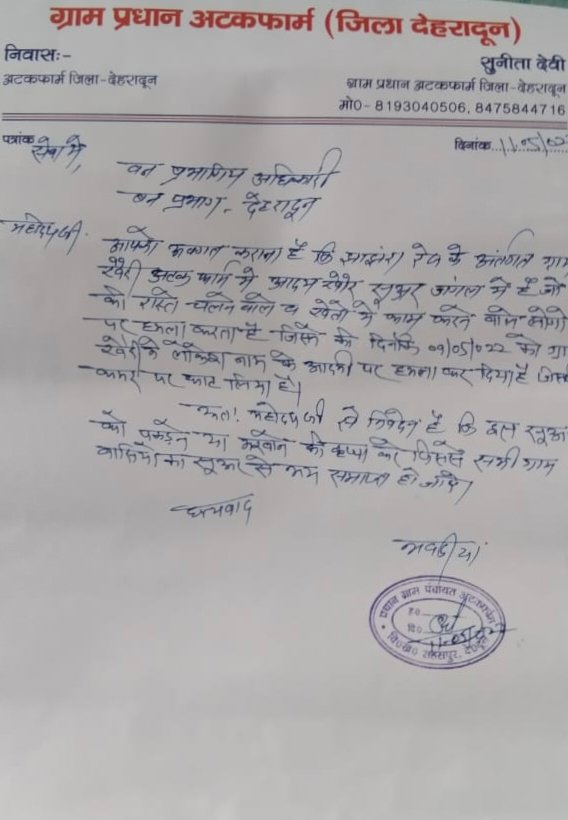 ग्राम प्रधान अटकफार्म (जिला देहरादून)
निवासः-
सुनीता देवी
अटकफार्म जिला-देहरादून
ग्राम प्रधान अटकफार्म जिला-देहरादून
मो0- 8193040506, 8475844716
पत्रांक
दिनांक 11.05/
सेवा में,
वन प्रभागिय अधिकारी
वन प्रभाग - देहरादून
महोदय जी.
आपको अवगत कराना है कि झाझरा रेंज के अंतर्गत ग्राम
अटक फार्म में आदम खोर सुअर जंगल में है जो
को रास्ते चलने वाले व खेतो में काम करने वाले लोगो
पर हमला करता है जिसने की दिनांक 09/05/022 को ग्रा
के लोकेश नाम के आदमी पर हमला कर दिया है जिस
कमर पर काट लिया है।
अतः महोदय जी से निवेदन है कि इस सुअर
को पकड़ने या मरवाने की कृपा करे जिससे सभी ग्राम
वासियों का सुअर से भय समाप्त हो जाये।
धन्यवाद
भवदीया
प्रधान ग्राम पंचायत अटकफार्म
ह०
दि० 11.05
वि०ख० सहसपुर, दे०दून